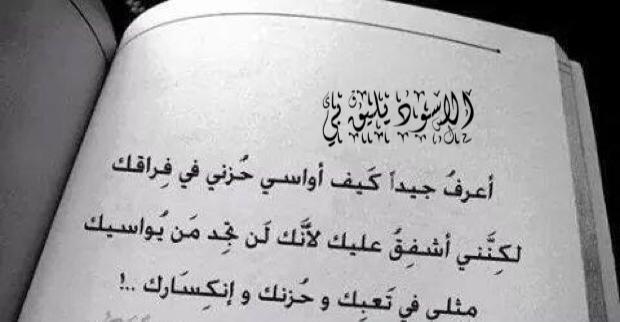 الاسود يليق بي
أعرفُ جيداً كَيف أواسي حُزني في فِراقك
لكِنَّني أشفِقُ عليك لأنَّك لَن تجِد مَن يُواسيك
مثلي في تَعبِك و حُزنك و إنكِسَارك ..!